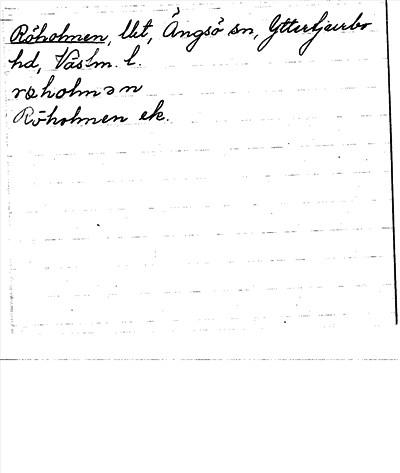 Röholmen, Ut, Ängsö sn, Ytterjäurbo
hd, Västm. l.
röholmən
Röholmen ek.